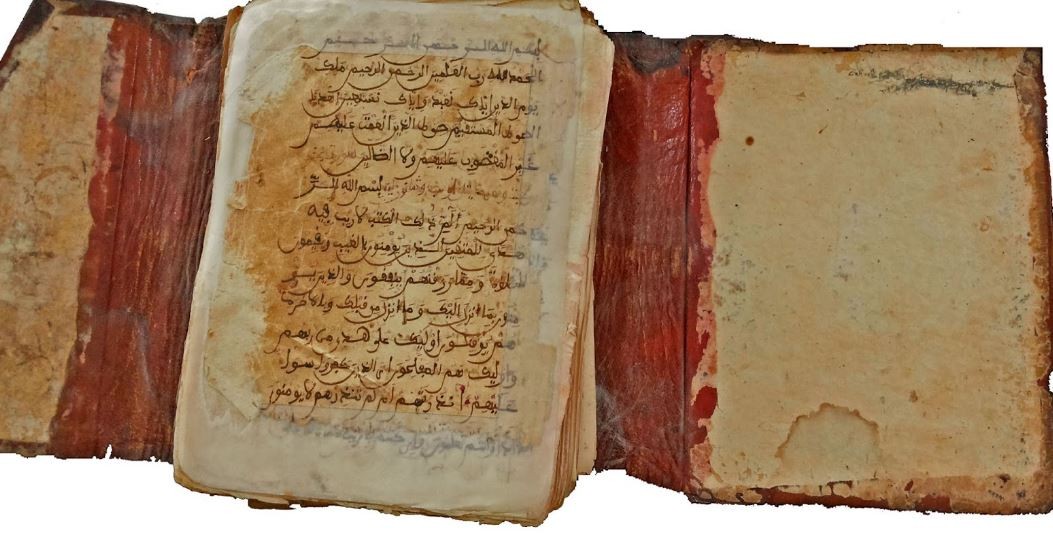 بسم الله الرحمن الرحيم
الحمد لله رب العلمين الرحمن الرحيم ملك
يوم الدين إياك نعبد وإياك نستعين اهدنا
الصرط المستقيم صرط الذين أنعمت عليهم
غير المغضوب عليهم ولا الضالين
بسم الله الر
حمن الرحيم ألم ذلك الكتب لا ريب فيه
هدى للمتقين الذين يومنون بالغيب ويقيمون
الصلاة ومما رزقنهم ينفقون والذين يو
منون بما أنزل إليك وما أنزل من قبلك وبالاخرة
هم يوقنون أوليك على هدى من ربهم
وأوليك هم المفلحون إن الذين كفروا سوا
عليهم أنذرتهم أم لم تنذرهم لا يومنون